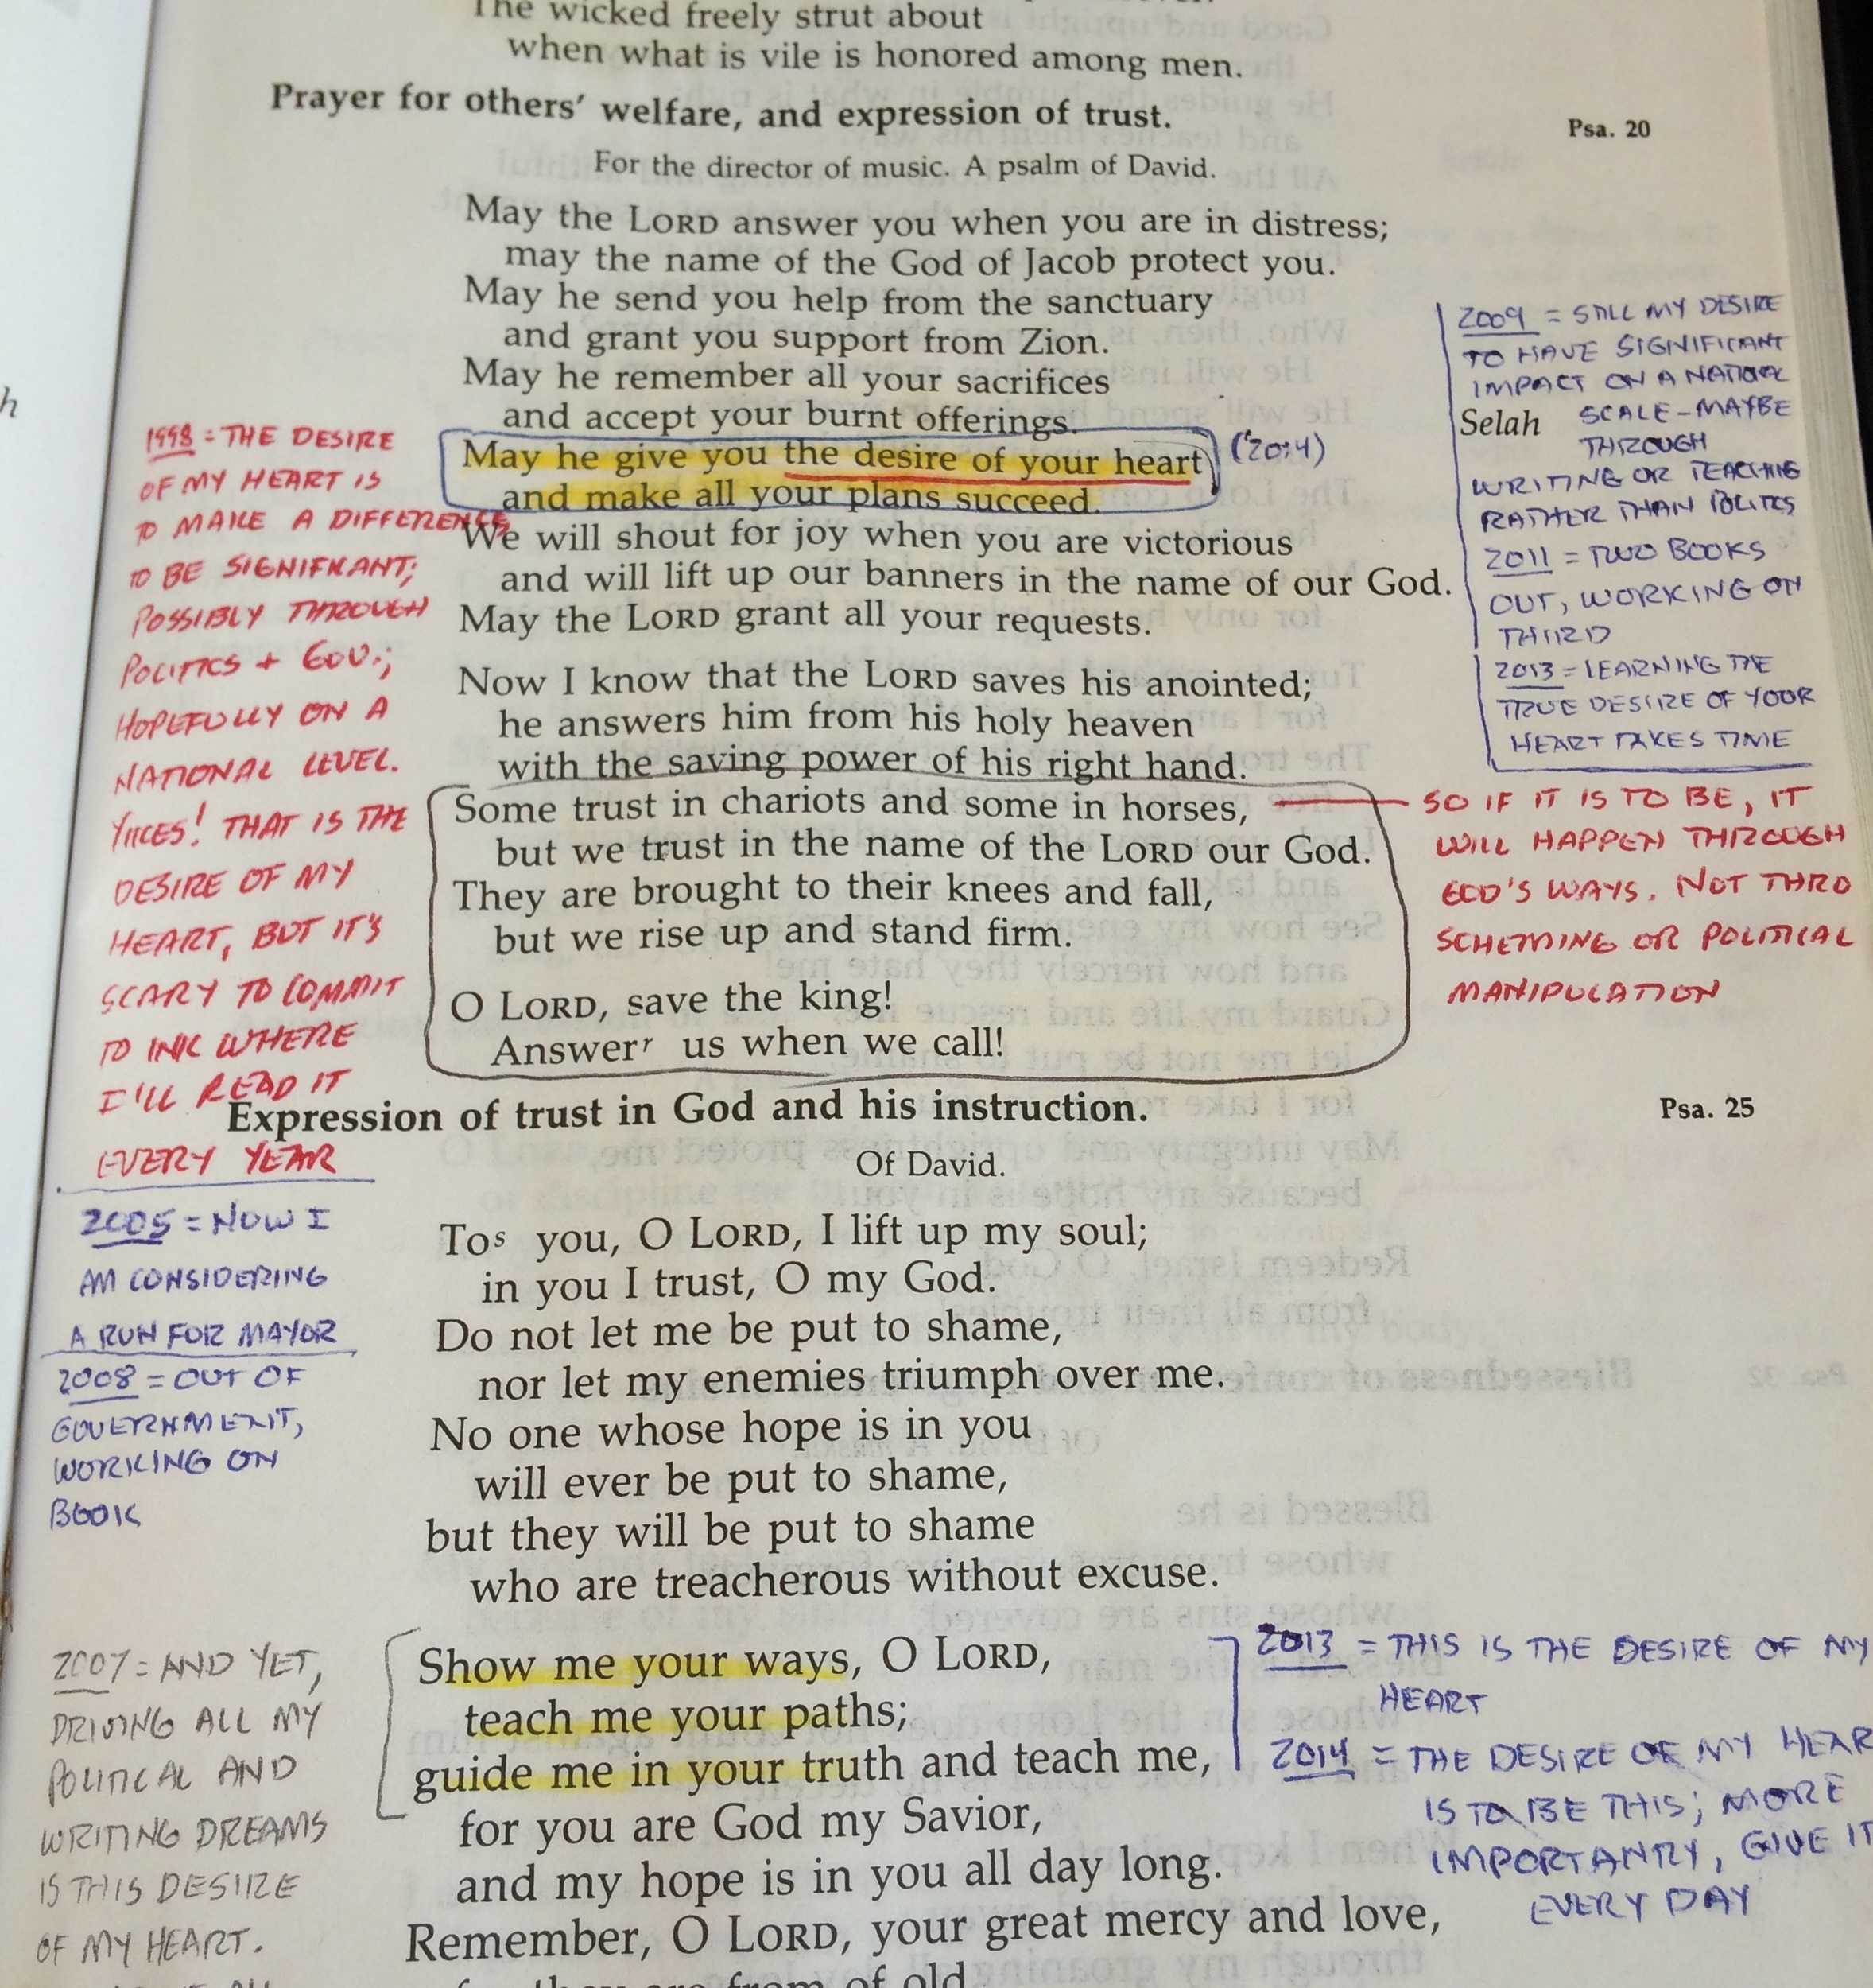 The wicked freely strut about
when what is vile is honored among men.
Prayer for others' welfare, and expression of trust.
Psa. 20
For the director of music. A psalm of David.
May the LORD answer you when you are in distress;
may the name of the God of Jacob protect you.
May he send you help from the sanctuary
and grant you support from Zion.
May he remember all your sacrifices
and accept your burnt offerings.
Selah
May he give you the desire of your heart
(20:4)
and make all your plans succeed.
We will shout for joy when you are victorious
and will lift up our banners in the name of our God.
May the LORD grant all your requests.
Now I know that the LORD saves his anointed;
he answers him from his holy heaven
with the saving power of his right hand.
Some trust in chariots and some in horses,
but we trust in the name of the LORD our God.
They are brought to their knees and fall,
but we rise up and stand firm.
O LORD, save the king!
Answerʳ us when we call!
1998 = THE DESIRE
OF MY HEART IS
TO MAKE A DIFFERENCE
TO BE SIGNIFICANT;
POSSIBLY THROUGH
POLITICS + GOV.;
HOPEFULLY ON A
NATIONAL LEVEL.
YIKES! THAT IS THE
DESIRE OF MY
HEART, BUT IT'S
SCARY TO COMMIT
TO INK WHERE
I'LL READ IT
EVERY YEAR
2005 = NOW I
AM CONSIDERING
A RUN FOR MAYOR
2008 = OUT OF
GOVERNMENT,
WORKING ON
BOOK
2009 = STILL MY DESIRE
TO HAVE SIGNIFICANT
IMPACT ON A NATIONAL
SCALE - MAYBE
THROUGH
WRITING OR TEACHING
RATHER THAN POLITICS
2011 = TWO BOOKS
OUT, WORKING ON
THIRD
2013 = LEARNING THE
TRUE DESIRE OF YOUR
HEART TAKES TIME
SO IF IT IS TO BE, IT
WILL HAPPEN THROUGH
GOD'S WAYS. NOT THRO
SCHEMING OR POLITICAL
MANIPULATION
Expression of trust in God and his instruction.
Psa. 25
Of David.
Toˢ you, O LORD, I lift up my soul;
in you I trust, O my God.
Do not let me be put to shame,
nor let my enemies triumph over me.
No one whose hope is in you
will ever be put to shame,
but they will be put to shame
who are treacherous without excuse.
Show me your ways, O LORD,
teach me your paths;
guide me in your truth and teach me,
for you are God my Savior,
and my hope is in you all day long.
Remember, O LORD, your great mercy and love,
2007 = AND YET,
DRIVING ALL MY
POLITICAL AND
WRITING DREAMS
IS THIS DESIRE
OF MY HEART.
2013 = THIS IS THE DESIRE OF MY
HEART
2014 = THE DESIRE OF MY HEAR
IS TO BE THIS; MORE
IMPORTANTLY, GIVE IT
EVERY DAY